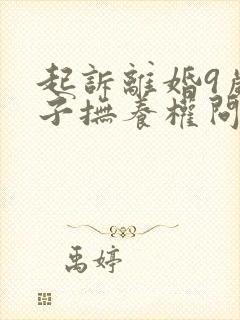 起訴離婚9歲
子撫養權問
禹婷